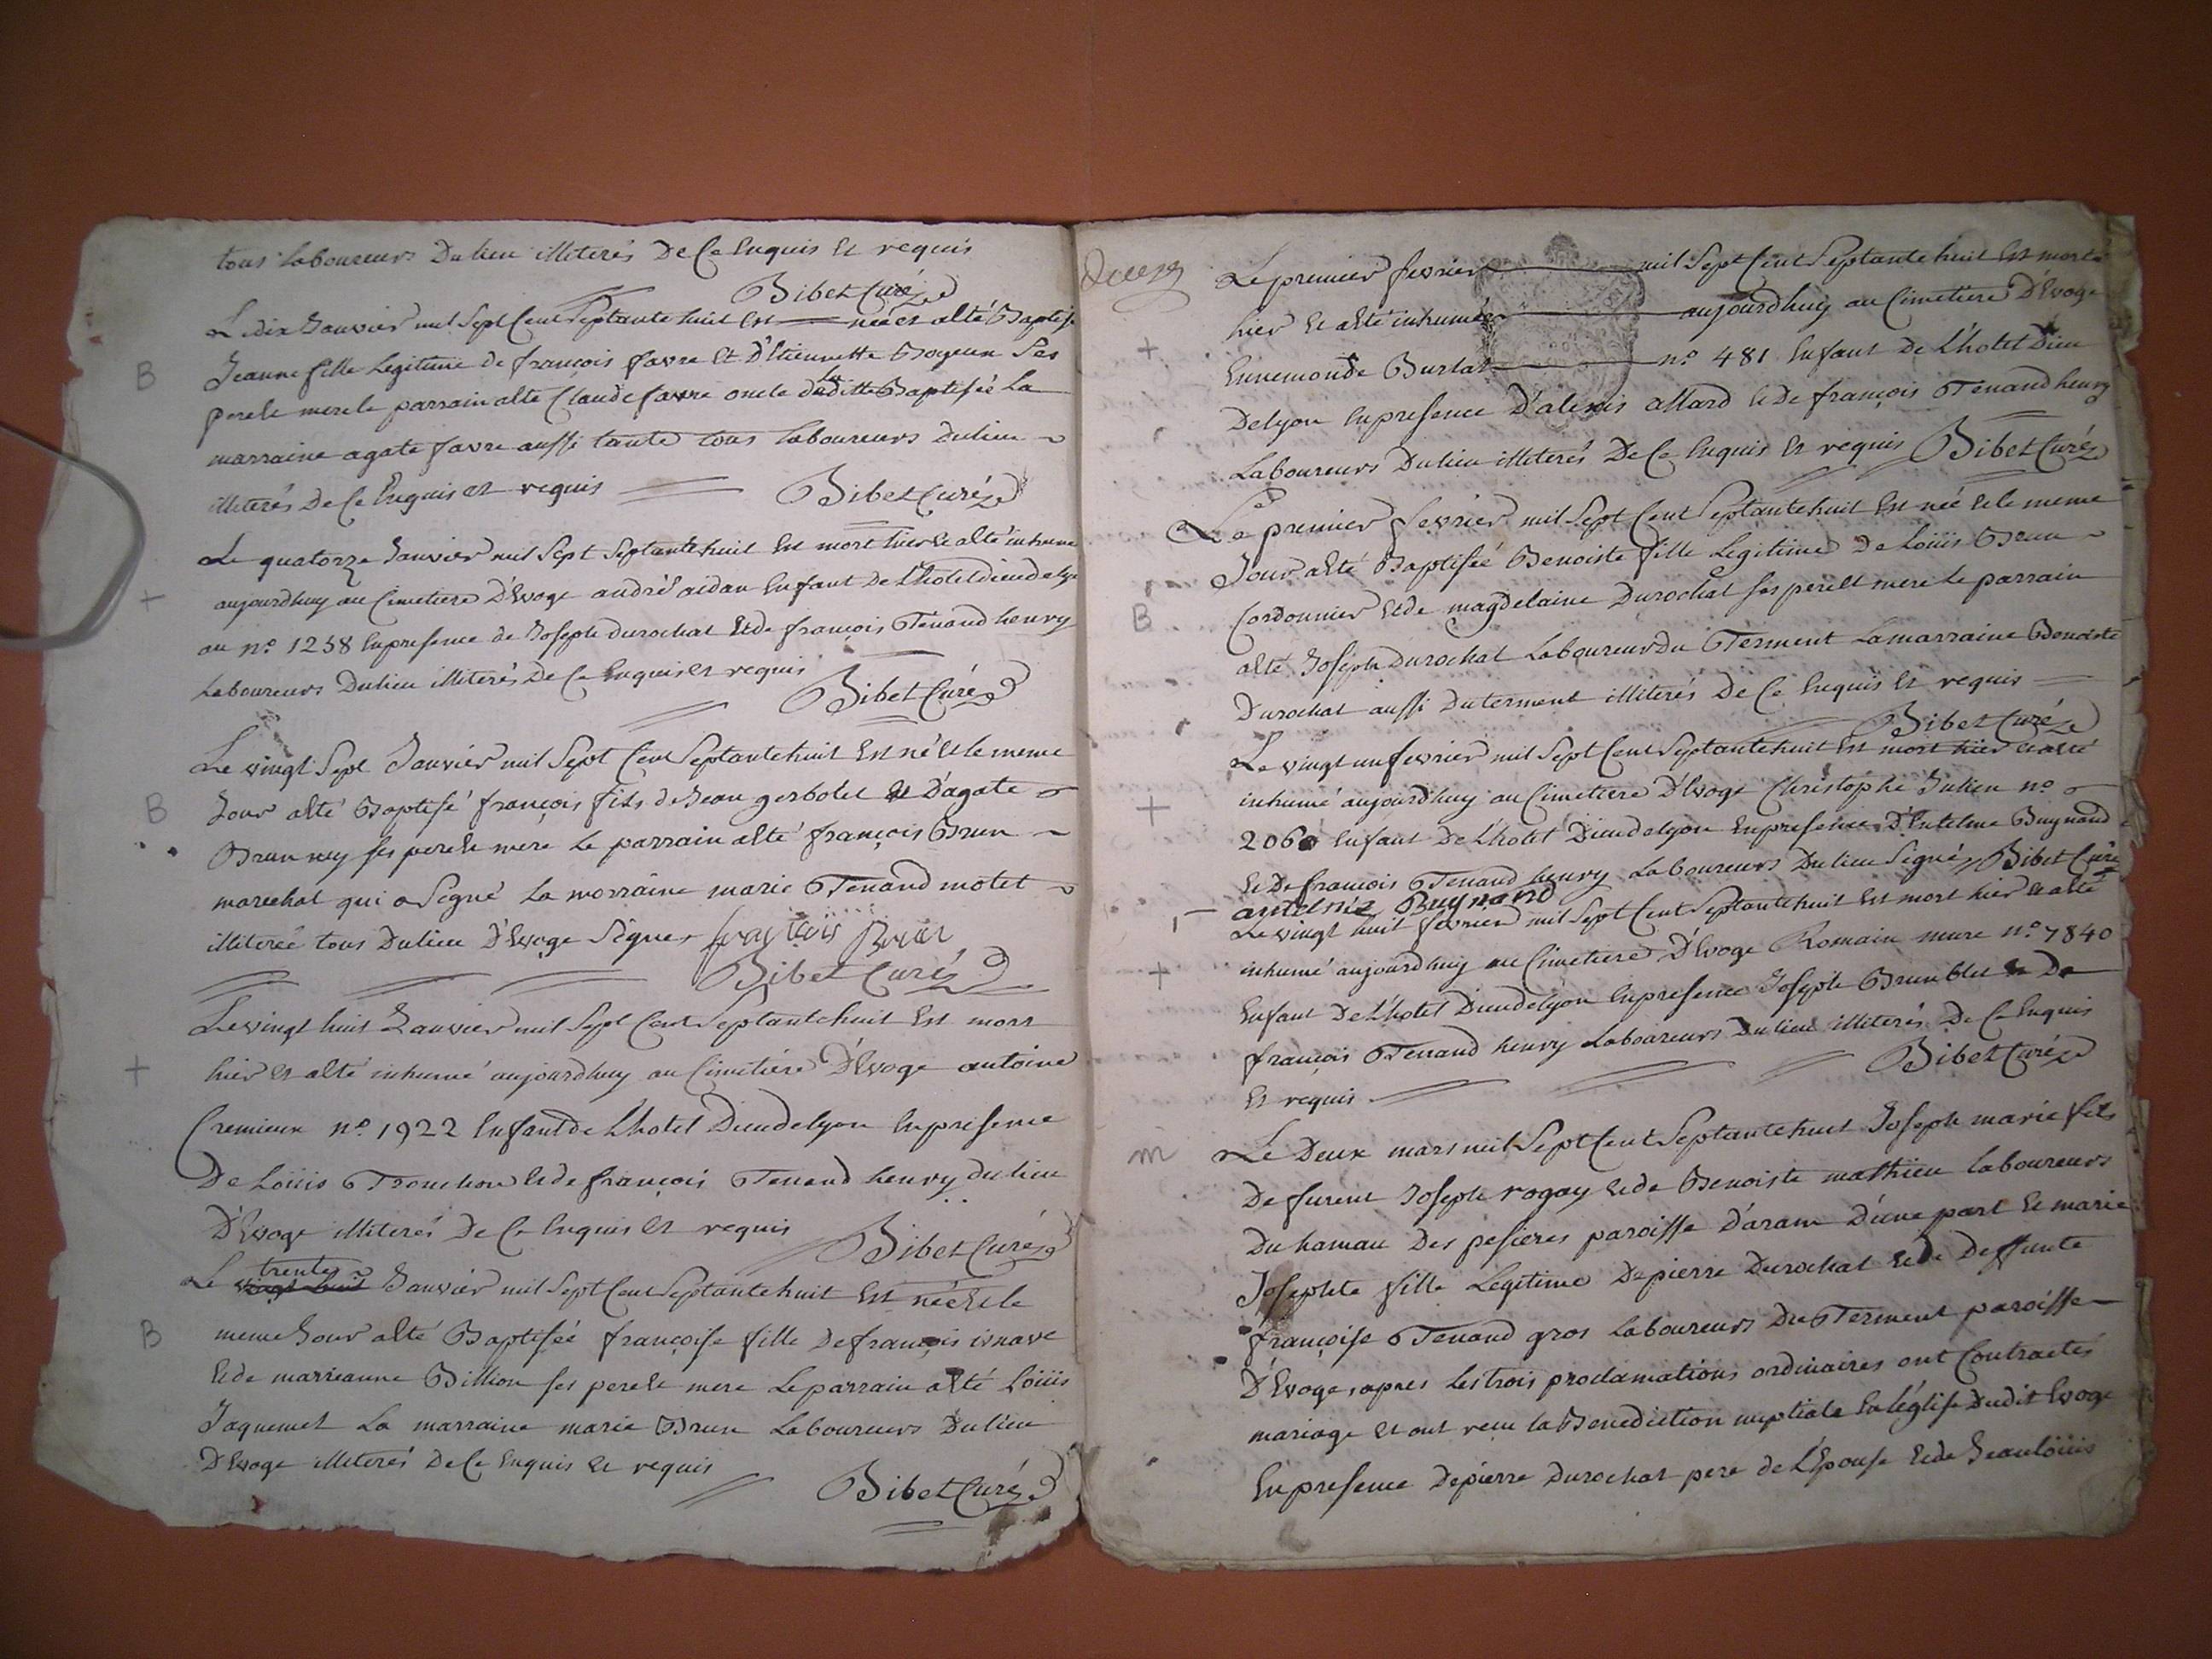 tous laboureurs Du lieu illiterés De Ce Enquis Et requis
Bibet Curé
B
Le dix Janvier mil Sept Cent Septante huit Est née et alté Baptise
Jeanne fille Legitime de françois favre Et D'Etiennette Bogeux Ses
pere le mere le parrain alté Claude favre oncle de la ditte Baptisée La
marraine agate favre aussi tante tous Laboureurs Du lieu
illiterés De Ce Enquis et requis Bibet Curé
+
Le quatorze Janvier mil Sept Septante huit Est mort hier Et alté inhume
aujourdhuy au Cimetiere D'Evoge andré aidan Enfant De l'hotel dieu de lyon
au n.º 1258 En presence de Joseph durochat Et de françois Tenand henry
Laboureurs Du lieu illiterés De Ce Enquis et requis
Bibet Curé
B
Le vingt Sept Janvier mil Sept Cent Septante huit Est né Et le meme
Jour alté Baptisé françois fils de Jean gerbolet Et D'agate
Brun rey ses pere le mere le parrain alté françois Brun
marechal qui a Signé La marraine marie Tenand motet
illiterée tous Du lieu D'Evoge Signes françois Brun
Bibet Curé
+
Le vingt huit Janvier mil Sept Cent Septante huit Est mort
hier et alté inhumé aujourdhuy au Cimetiére D'Evoge antoine
Cremieux n.º 1922 Enfant de L'hotel Dieu de lyon En presence
De Loüis Tronchon Et de françois Tenand henry du lieu
D'Evoge illiterés De Ce Enquis Et requis
Bibet Curé
B
Le vingt huit trente Janvier mil Sept Cent Septante huit Est née Et le
meme Jour alté Baptisée françoise fille De françois ivrave
Et de marieanne Billion ses pere le mere Le parrain alté Loüis
Jaquemet La marraine marie Brun Laboureurs Du lieu
D'Evoge illiterés De Ce Enquis Et requis
Bibet Curé
+
Le premier fevrier mil Sept Cent Septante huit Est morte
hier Et alté inhumée aujourdhuy au Cimetiere D'Evoge
Ennemonde Burlat n.º 481 Enfant De L'hotel Dieu
De lyon En presence D'alexis allard Et De françois Tenand henry
Laboureurs Du lieu illiterés De Ce Enquis Et requis Bibet Curé
B
Le premier fevrier mil Sept Cent Septante huit Est née Et le meme
Jour alté Baptisée Benoiste fille Legitime De Loüis Brun
Cordonnier Et de magdelaine Durochat ses pere Et mere le parrain
alté Joseph Durochat Laboureur du Terment La marraine Benoiste
Durochat aussi du terment illiterés De Ce Enquis Et requis
Bibet Curé
+
Le vingt un fevrier mil Sept Cent Septante huit Est mort hier Et alté
inhumé aujourdhuy au Cimetiere D'Evoge Christophe Julien n.º
2060 Enfant De L'hotel Dieu de lyon En presence D'Entelme Buynand
Et De françois Tenand henry Laboureurs Du lieu Signé Bibet Curé
antelme Buynand
+
Le vingt huit fevrier mil Sept Cent Septante huit Est mort hier Et alté
inhumé aujourdhuy au Cimetiere D'Evoge Romain mure n.º 7840
Enfant De L'hotel Dieu de lyon En presence Joseph Brun blet Et De
françois Tenand henry Laboureurs Du lieu illiterés De Ce Enquis
Et requis Bibet Curé
m
Le Deux mars mil Sept Cent Septante huit Joseph marie fils
De furent Joseph rogay Et de Benoiste mathieu laboureurs
Du hamau Des pesieres paroisse D'aram D'une part Et marie
Josephte fille Legitime De pierre Durochat Et De Deffunte
françoise Tenand gros Laboureurs Du Terment paroisse
D'Evoge, apres les trois proclamations ordinaires ont Contractés
mariage Et ont reçu la Benediction nuptiale En l'église Dudit Evoge
En presence De pierre Durochat pere de L'épouse Et de Jean loüis